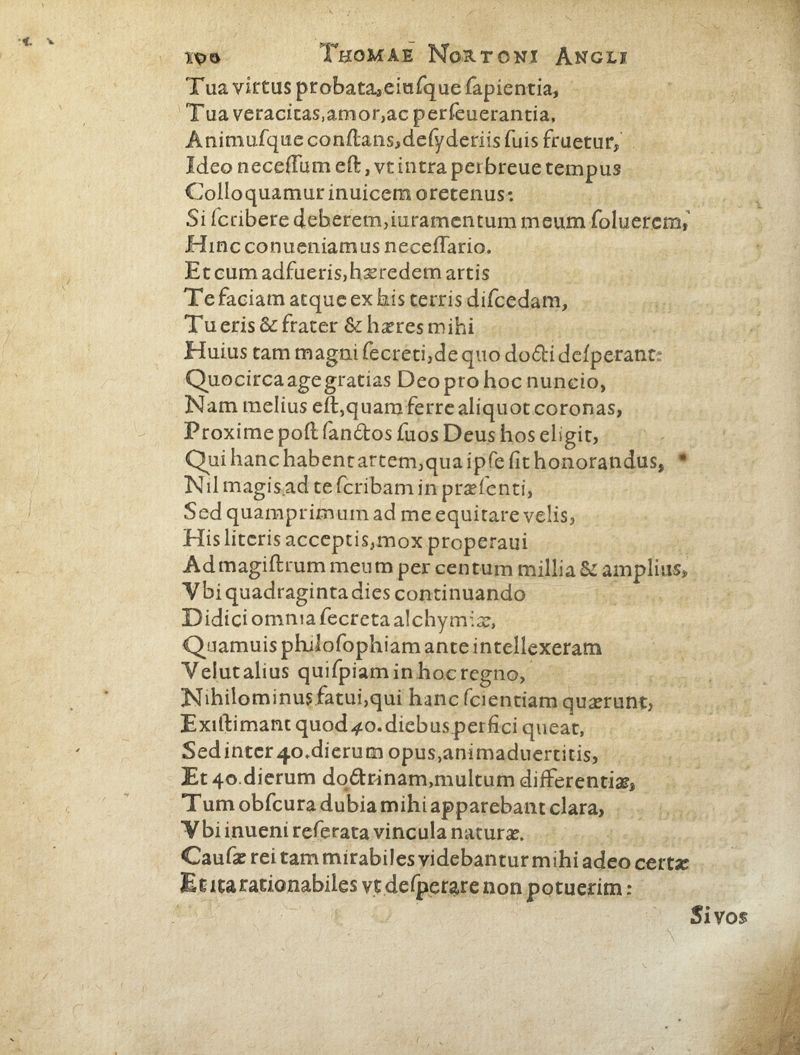 100 THOMAE NORTONI ANGLI
Tua virtus probata, eiuſque ſapientia,
Tua veracitas, amor, ac perſeuerantia,
Animuſque conſtans, deſyderiis ſuis fruetur,
Ideo neceſſum eſt, vt intra perbreue tempus
Colloquamur inuicem oretenus:
Si ſcribere deberem, iuramentum meum ſoluerem,
Hinc conueniamus neceſſario.
Et cum adfueris, hæredem artis
Te faciam atque ex his terris diſcedam,
Tu eris & frater & hæres mihi
Huius tam magni ſecreti, de quo docti deſperant:
Quocirca age gratias Deo pro hoc nuncio,
Nam melius eſt, quam ferre aliquot coronas,
Proxime poſt ſanctos ſuos Deus hos eligit,
Qui hanc habent artem, qua ipſe ſit honorandus,
Nil magis ad te ſcribam in præſenti,
Sed quamprimum ad me equitare velis,
His literis acceptis, mox properaui
Ad magiſtrum meum per centum millia & amplius,
Vbi quadraginta dies continuando
Didici omnia ſecreta alchymiæ,
Quamuis philoſophiam ante intellexeram
Velut alius quiſpiam in hoc regno,
Nihilominus fatui, qui hanc ſcientiam quærunt,
Exiſtimant quod 40. diebus perfici queat,
Sed inter 40. dierum opus, animaduertitis,
Et 40. dierum doctrinam, multum differentiæ,
Tum obſcura dubia mihi apparebant clara,
Vbi inueni reſerata vincula naturæ.
Cauſæ rei tam mirabiles videbantur mihi adeo certæ
Et ita rationabiles vt deſperare non potuerim:
Si vos